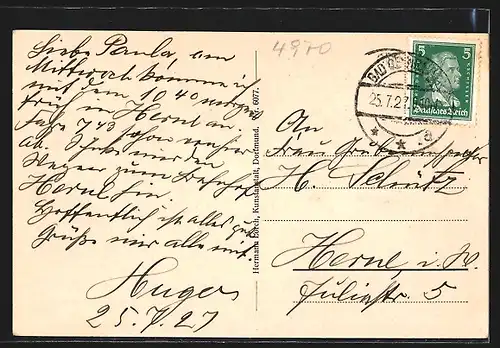 4970
Liebe Paula, am
Mittwoch komme ich
mit dem 10 40
in Herne an.
Fahre 7 43 schon
ab.
Wagen zum Bahnhof
Herne hin.
Hoffentlich ist alles gut
Grüße mir alle mit.
Hugo
25.7.27
Hermann Lorch, Kunstanstalt, Dortmund. 6077.
BAD
25.7.27
a
5 5
Deutsches Reich
An
Frau Grubeninspektor
H. Schütz
Herne, i. W.
Juliastr. 5